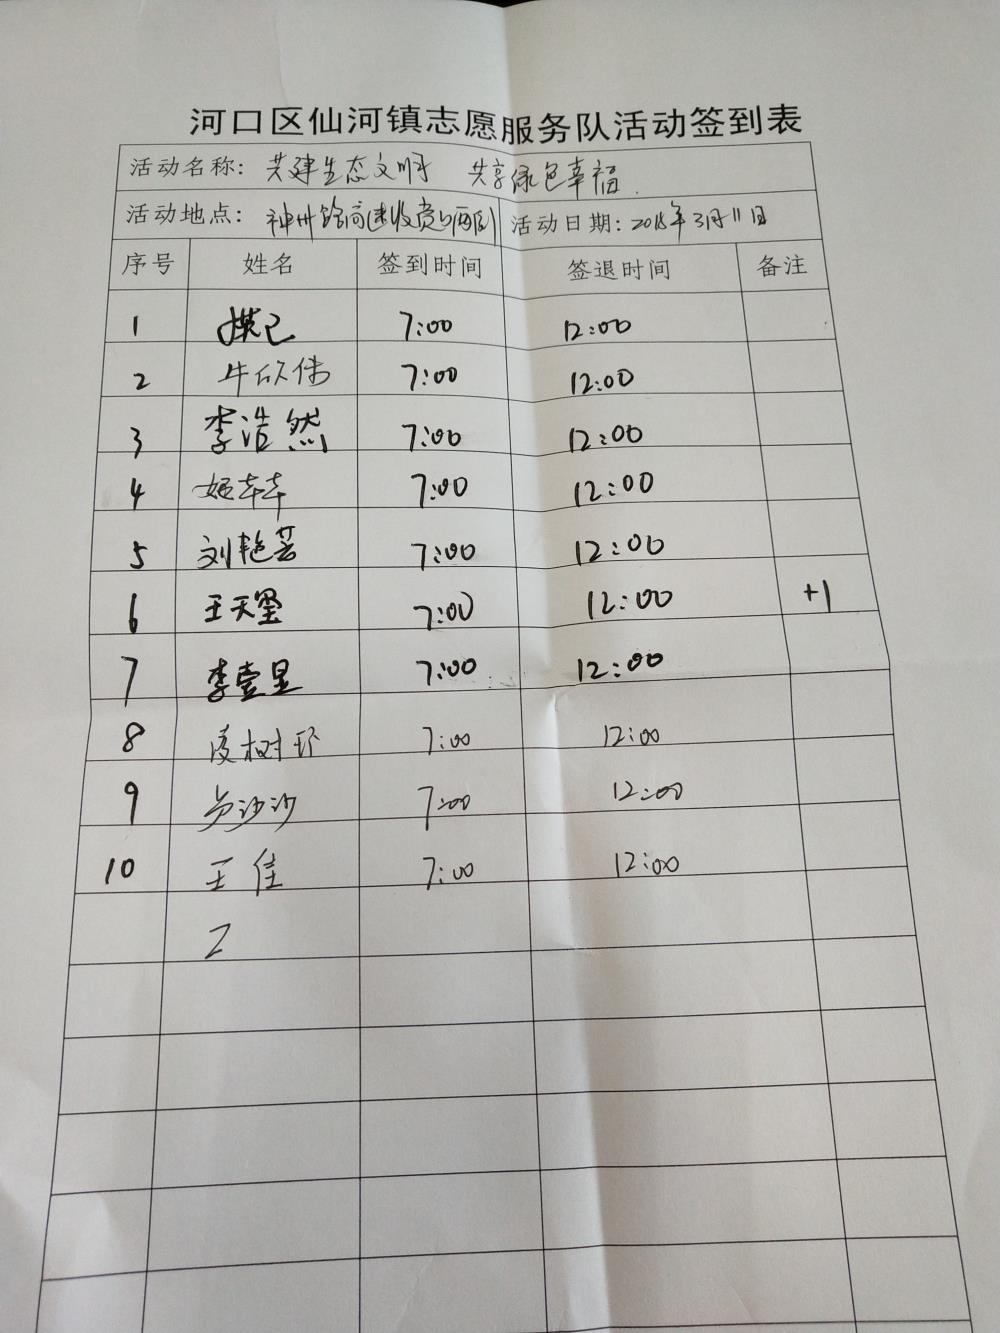 河口区仙河镇志愿服务队活动签到表
活动名称: 共建生态文明 共享绿色幸福
活动地点: 神州路高速收费口两侧 活动日期: 2018年3月11日
序号 姓名 签到时间 签退时间 备注
1 7:00 12:00
2 牛欣伟 7:00 12:00
3 李浩然 7:00 12:00
4 7:00 12:00
5 刘艳芸 7:00 12:00
6 王天墨 7:00 12:00 +1
7 李壹昱 7:00 12:00
8 凌树环 7:00 12:00
9 沙沙 7:00 12:00
10 王佳 7:00 12:00